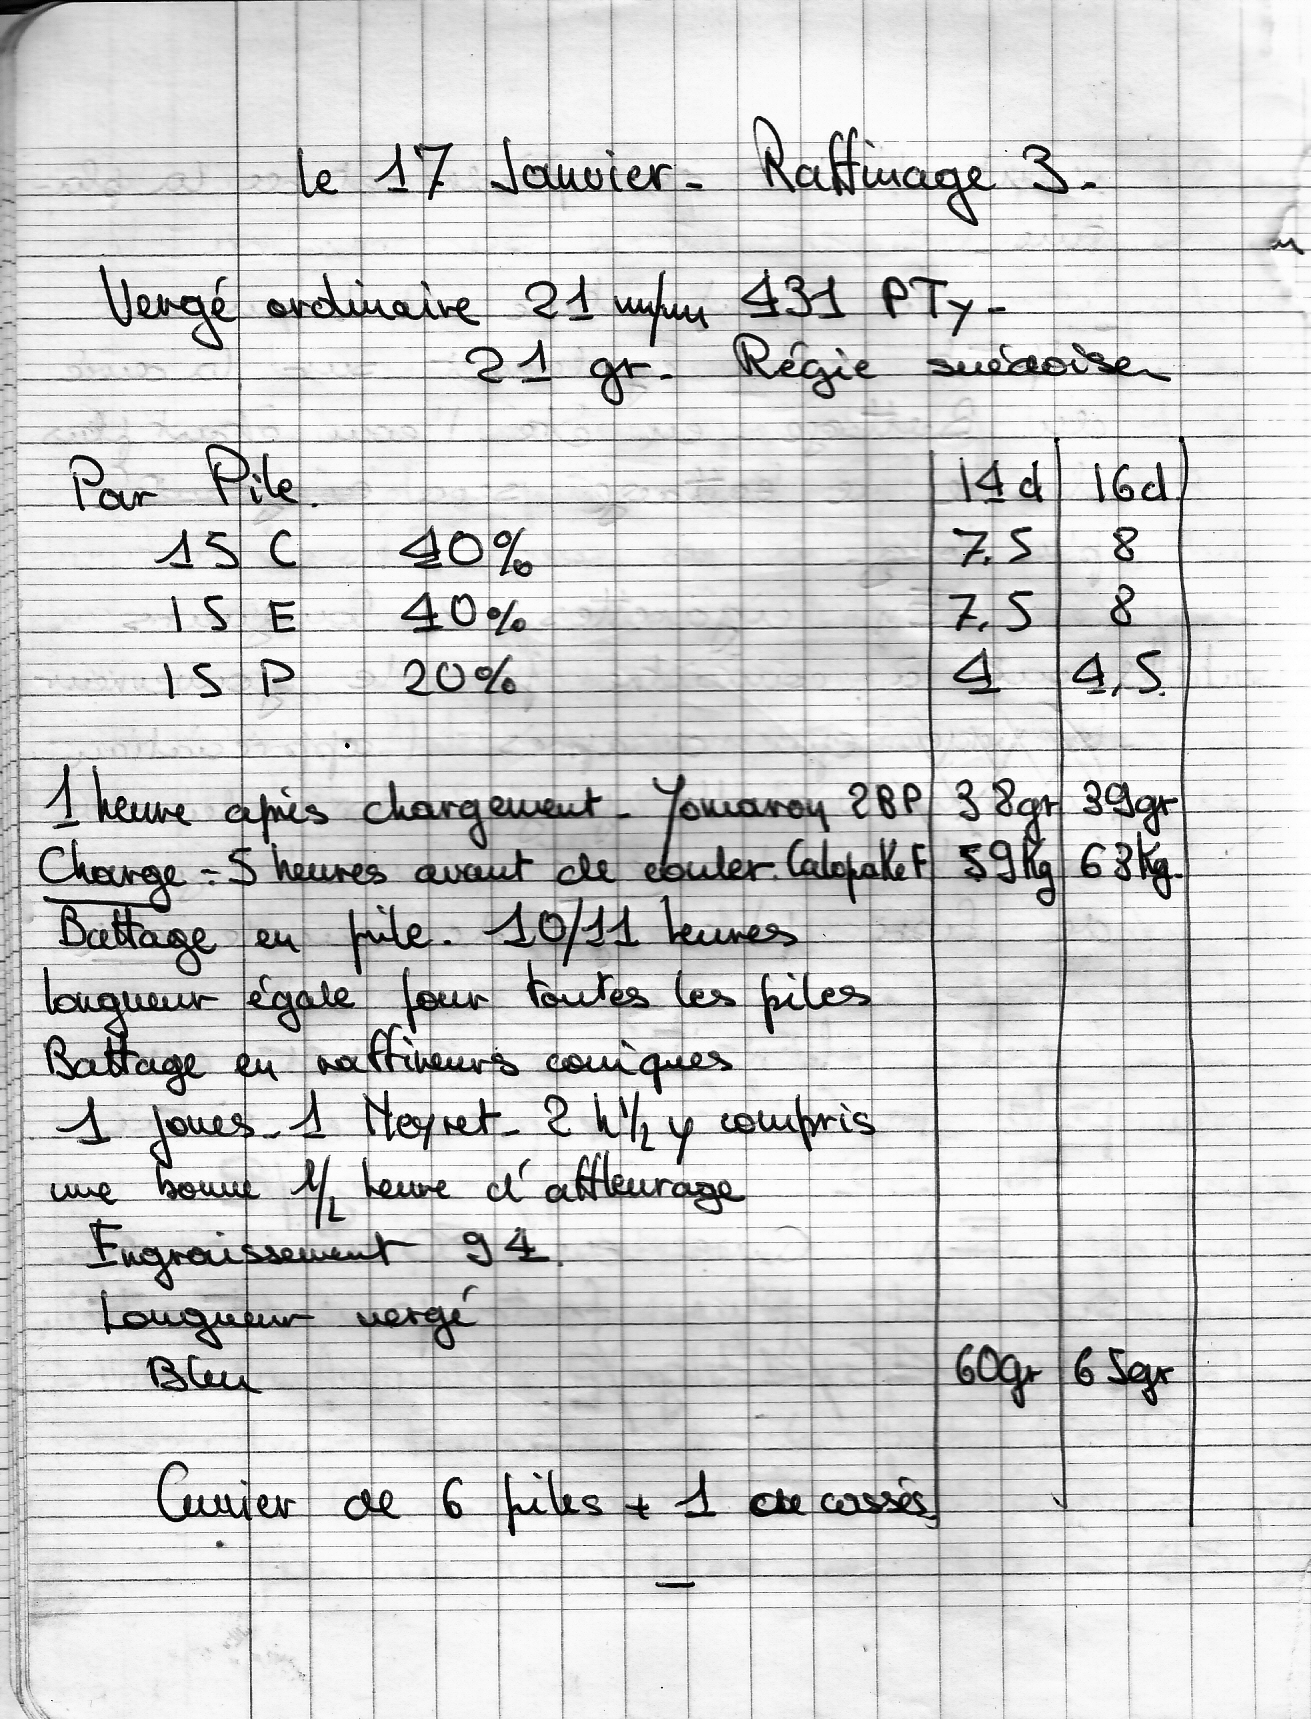 le 17 Janvier - Raffinage 3 -
Vergé ordinaire 21 m/m 431 PTy -
21 gr - Régie suédoise
Par Pile. 14d 16d
15 C 40% 7.5 8
15 E 40% 7.5 8
15 P 20% 4 4,5
1 heure après chargement - 2BP 38gr 39gr
Charge = 5 heures avant de couler. Calopake F 59Kg 63Kg
Battage en pile - 10/11 heures
longueur égale pour toutes les piles
Battage en raffineurs coniques
1 joues - 1 Neyret - 2 h 1/2 y compris
une bonne 1/2 heure d'affleurage
Engraissement 94
Longueur vergé
Bleu 60gr 65gr
Cuvier de 6 piles + 1 de cassés